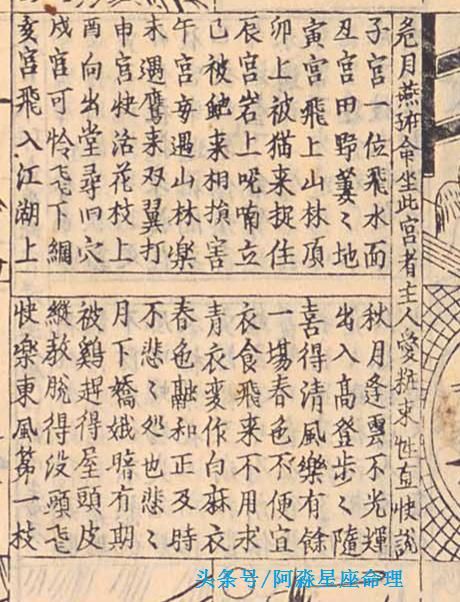 危月燕 命坐此宮者主人愛粧束性直快說
子宮一位飛水面
丑宮田野萋〻地
寅宮飛上山林頂
卯上被猫来捉住
辰宮岩上呢喃立
巳被蛇来相損害
午宮妄遇山林樂
未遇鷹来双翼打
申宮快活花枝上
酉向出堂尋旧穴
戌宮可怜飞下網
亥宮飛入江湖上
秋月逢雲不光輝
出入高登步〻隨
喜得清風樂有餘
一場春色不便宜
衣食飛来不用求
青衣変作白麻衣
春色融和正及時
不悲〻怨也悲〻
月下嬌娥暗有期
被鷄趕得屋頭皮
縱教脫得没頭飞
快樂東風第一枝
头条号/阿淼星座命理